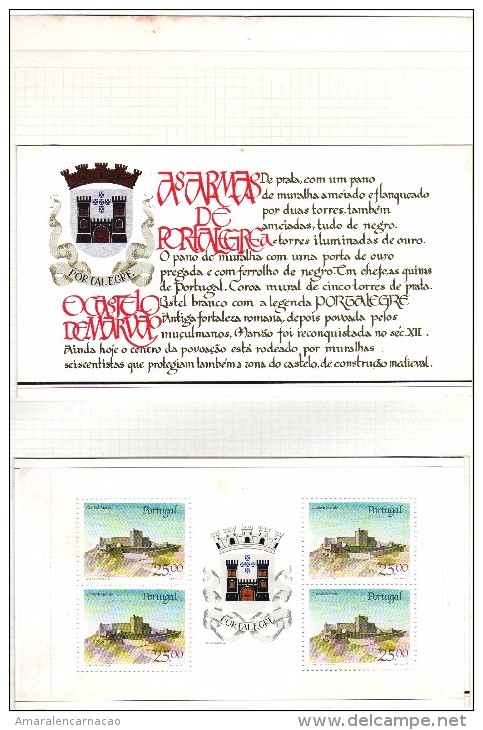 AS ARMAS
DE
PORTALEGRE
De prata, com um pano
de muralha ameiado e flanqueado
por duas torres, também
ameiadas, tudo de negro.
As torres iluminadas de ouro.
O pano de muralha com uma porta de ouro
pregada e com ferrolho de negro. Em chefe, as quinas
de Portugal. Coroa mural de cinco torres de prata.
Listel branco com a legenda PORTALEGRE
PORTALEGRE
O CASTELO
DE MARVÃO
Antiga fortaleza romana, depois povoada pelos
muçulmanos, Marvão foi reconquistada no séc. XII.
Ainda hoje o centro da povoação está rodeado por muralhas
seiscentistas que protegiam também a zona do castelo, de construção medieval.
Portugal
25.00
Portugal
25.00
PORTALEGRE
Portugal
25.00
Portugal
25.00
Amaralencarnacao
delcampe.net